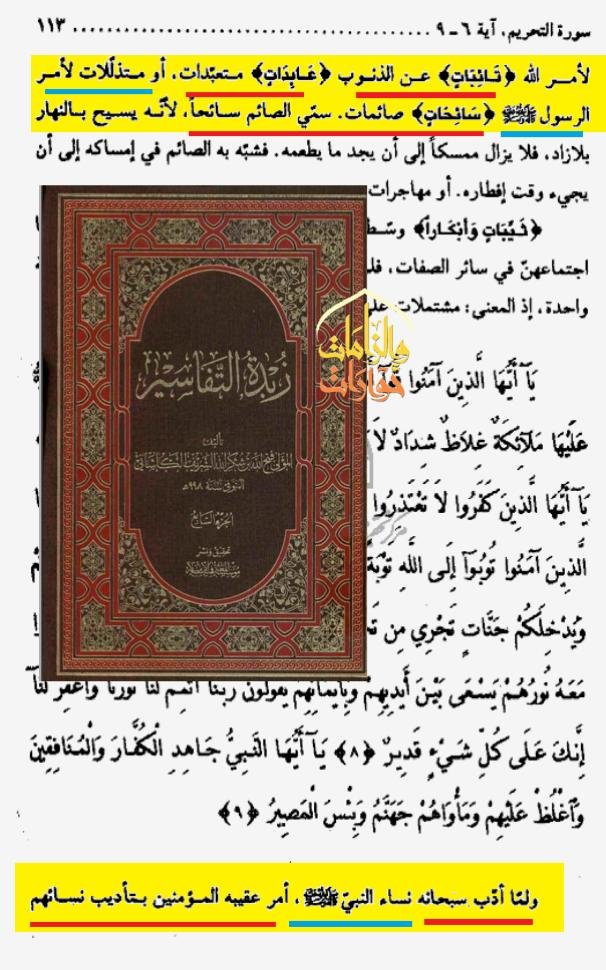 سورة التحريم، آية ٦ - ٩ ........................................ ١١٣
لأمر الله ﴿تَائِبَاتٍ﴾ عن الذنوب ﴿عَابِدَاتٍ﴾ متعبّدات، أو متذلّلات لأمر
الرسول ﷺ ﴿سَائِحَاتٍ﴾ صائمات. سمّي الصائم سائحاً، لأنّه يسيح بالنهار
بلازاد، فلا يزال ممسكاً إلى أن يجد ما يطعمه. فشبّه به الصائم في إمساكه إلى أن
يجيء وقت إفطاره. أو مهاجرات
﴿ثَيِّبَاتٍ وَأَبْكَاراً﴾ وسّط
اجتماعهنّ في سائر الصفات، فلـ
واحدة، إذ المعنى: مشتملات علـ
والزامات
حوارات
زبدة التفاسير
تأليف
المولى فتح الله بن شكر الله الشريف الكاشاني
المتوفى سنة ٩٨٨ هـ
الجزء السابع
تحقيق ونشر
مؤسسة المعارف الإسلامية
يَآ أَيُّهَا الَّذِينَ آمَنُوا
عَلَيْهَا مَلَآئِكَةٌ غِلَاظٌ شِدَادٌ لَا
يَآ أَيُّهَا الَّذِينَ كَفَرُوا لَا تَعْتَذِرُوا
الَّذِينَ آمَنُوا تُوبُوآ إِلَى اللَّهِ تَوْبَةً
وَيُدْخِلَكُمْ جَنَّاتٍ تَجْرِي مِن
مَعَهُ نُورُهُمْ يَسْعَى بَيْنَ أَيْدِيهِمْ وَبِأَيْمَانِهِمْ يَقُولُونَ رَبَّنَآ أَتْمِمْ لَنَا نُورَنَا وَاغْفِرْ لَنَآ
إِنَّكَ عَلَى كُلِّ شَيْءٍ قَدِيرٌ ﴿٨﴾ يَآ أَيُّهَا النَّبِيُّ جَاهِدِ الْكُفَّارَ وَالْمُنَافِقِينَ
وَآغْلُظْ عَلَيْهِمْ وَمَأْوَاهُمْ جَهَنَّمُ وَبِئْسَ الْمَصِيرُ ﴿٩﴾
ولمّا أدّب سبحانه نساء النبيّ ﷺ، أمر عقيبه المؤمنين بتأديب نسائهم